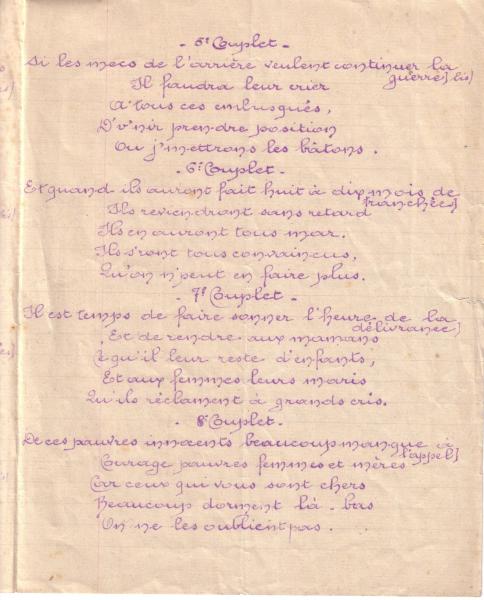 - 5e Couplet -
Si les mecs de l'arrière veulent continuer la
guerre} bis}
Il faudra leur crier
A tous ces embusqués,
D'v'nir prendre position
Ou j'mettrons les bâtons.
- 6e Couplet -
Et quand ils auront fait huit à dix mois de
tranchées}
Ils reviendront sans retard
Ils en auront tous mar.
Ils s'ront tous convaincus,
Qu'on n'peut en faire plus.
- 7e Couplet -
Il est temps de faire sonner l'heure de la
délivrance}
Et de rendre aux mamans
C'qu'il leur reste d'enfants,
Et aux femmes leurs maris
Qu'ils réclament à grands cris.
- 8e Couplet.
De ces pauvres innocents beaucoup manque à
l'appel}
Courage pauvres femmes et mères
Car ceux qui vous sont chers
Beaucoup dorment là-bas
On ne les oublient pas.